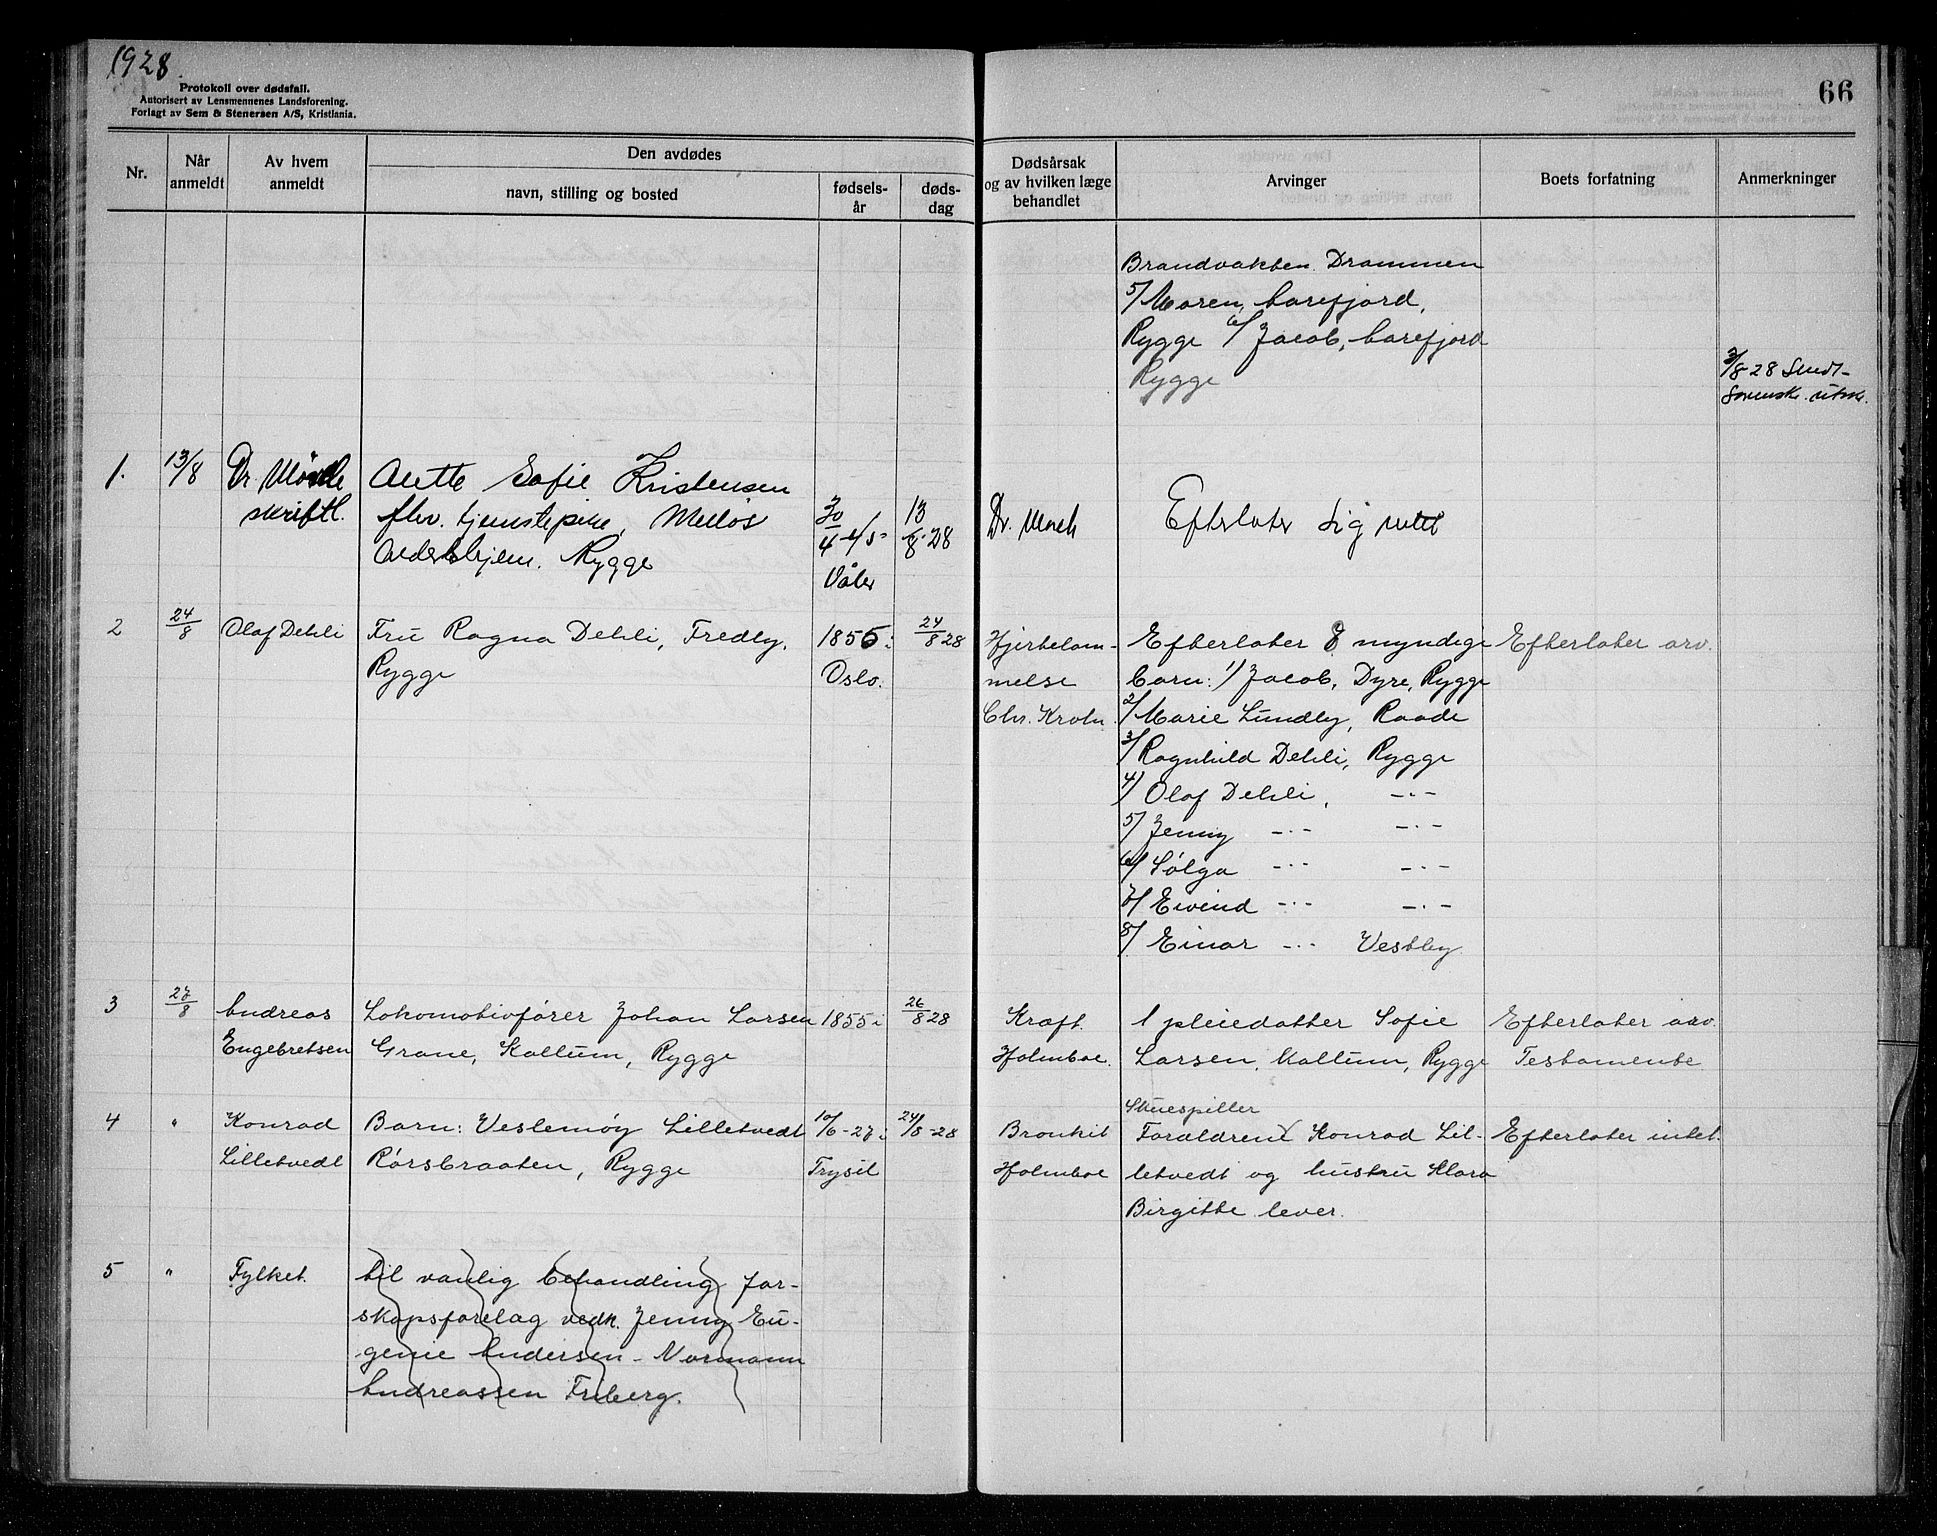 1928.
Protokoll over dødsfall.
Autorisert av Lensmennenes Landsforening.
Forlagt av Sem & Stenersen A/S, Kristiania.
66
Nr.
Når anmeldt
Av hvem anmeldt
Den avdødes
navn, stilling og bosted
fødsels-år
døds-dag
Dødsårsak og av hvilken læge behandlet
Arvinger
Boets forfatning
Anmerkninger
Brandvakten Drammen
5/ Maren, Larefjord,
Rygge 6/ Jacob, Larefjord
Rygge
3/8-28 Sendt
1. 13/8 Dr. Anette Sofie Kristensen
skriftl. flv. tjenstepike, Melløs 30/4-45 13/8-28 Dr. Efterlater sig intet
Aldershjem. Rygge
Våler
2 24/8 Olaf Dehli Fru Ragna Dehli, Fredly, 1856 i 24/8 28 Hjertelam- Efterlater 8 myndige Efterlater arv.
Rygge Oslo. melse barn: 1/ Jacob, Dyre, Rygge
Chr. Krohn 2/ Marie Lundby, Raade
3/ Ragnhild Dehli, Rygge
4/ Olaf Dehli, -·-
5/ Jenny -·- -·-
6/ Sølga -·- -·-
7/ Eivind -·- -·-
8/ Einar -·- Vestby
3 27/8 Andreas Lokomotivfører Johan Larsen 1855 i 26/8 28 Kræft. 1 pleiedatter Sofie Efterlater arv.
Engebretsen Grane, Kallum, Rygge Holmboe. Larsen, Kallum, Rygge Testamente
4 " Konrad Barn: Veslemøy Lilletvedt 10/6-27 i 24/8-28 Bronkit Skuespiller
Forældrene Konrad Lil- Efterlater intet.
Lilletvedt Rørsbraaten, Rygge Trysil Holmboe letvedt og hustru Klara
Birgitte lever.
5 " Fylket. til vanlig behandling far-
skapsforelag vedk. Jenny Eu-
genie Andersen - Normann
Andreassen Friberg.